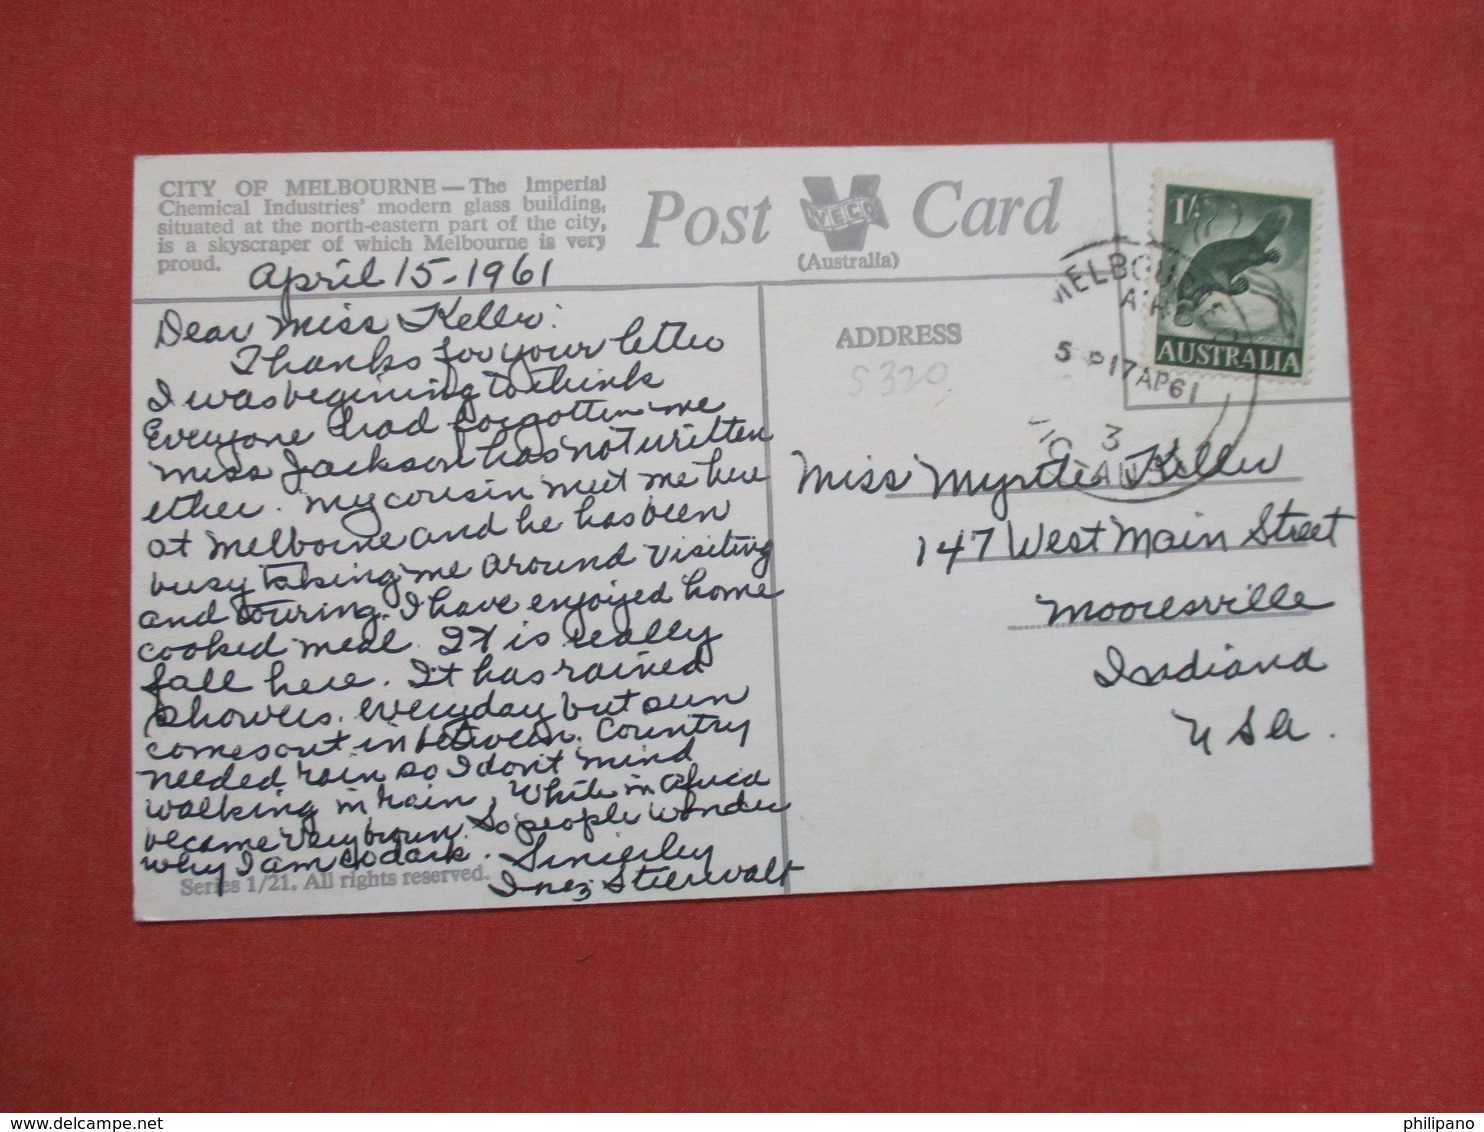 CITY OF MELBOURNE — The Imperial
Chemical Industries' modern glass building,
situated at the north-eastern part of the city,
is a skyscraper of which Melbourne is very
proud.
Post VECO Card
(Australia)
April 15-1961
Dear Miss Keller:
Thanks for your letter
I was begining to think
Everyone had forgotten me
Miss Jackson has not written
either. My cousin meet me here
at Melborne and he has been
busy taking me around visiting
and touring. I have enjoyed home
cooked meal. It is really
fall here. It has rained
showers. everyday but sun
comes out in between. Country
needed rain so I don't mind
walking in rain, While in Africa
became very brown. So people wonder
why I am so dark. Sincerley
Inez Stierwalt
Series 1/21. All rights reserved.
1/-
AUSTRALIA
MELBOURNE
AIR
5 P 17 AP 61
3
VIC
ADDRESS
5320
Miss Myrtle Keller
147 West Main Street
Mooresville
Indiana
USA.
philipano
www.delcampe.net